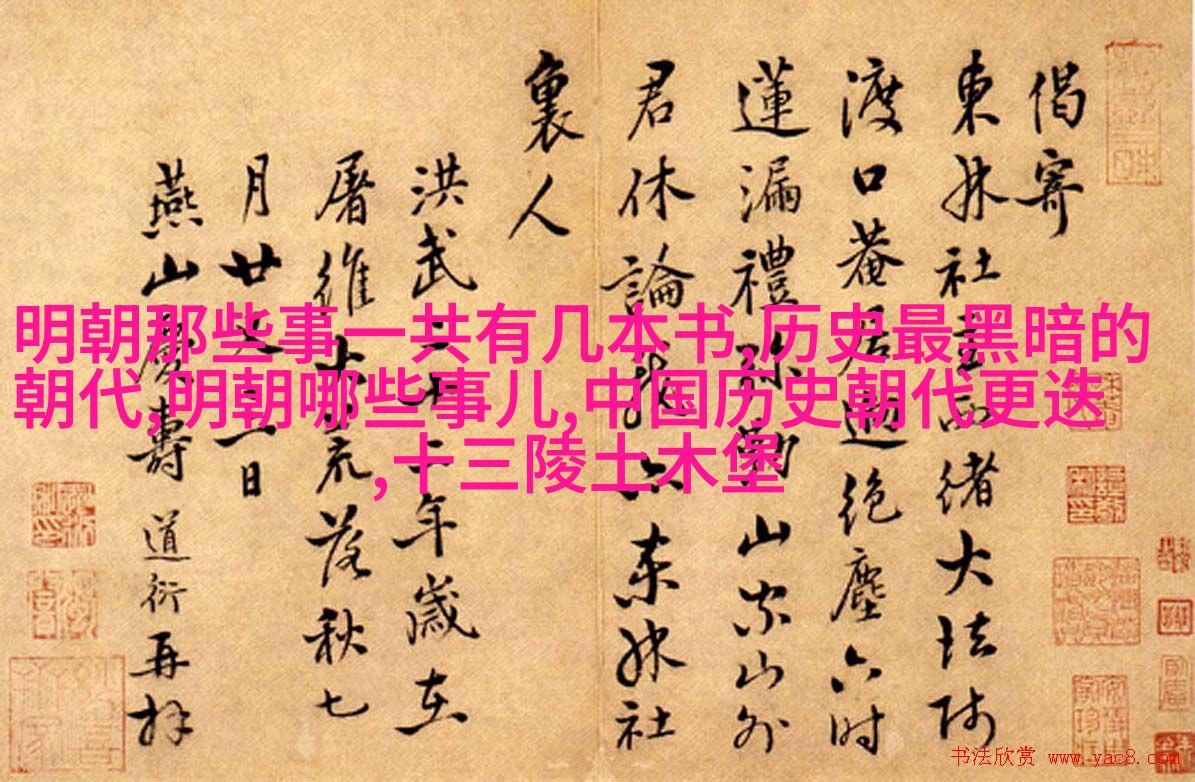 偈寄
東林社緒大法師
渡口菴居迥絶塵六時
蓮漏禮弥勒山宗山外
君休論我亦東林社
裏人
洪武二十二年歲在
屠維大荒落秋七
月廿一日
燕山慶壽道衍再拜
明朝那些事一共有几本书,历史最黑暗的
朝代,明朝哪些事儿,中国历史朝代更迭
,十三陵土木堡
书法欣赏 www.yac8.com